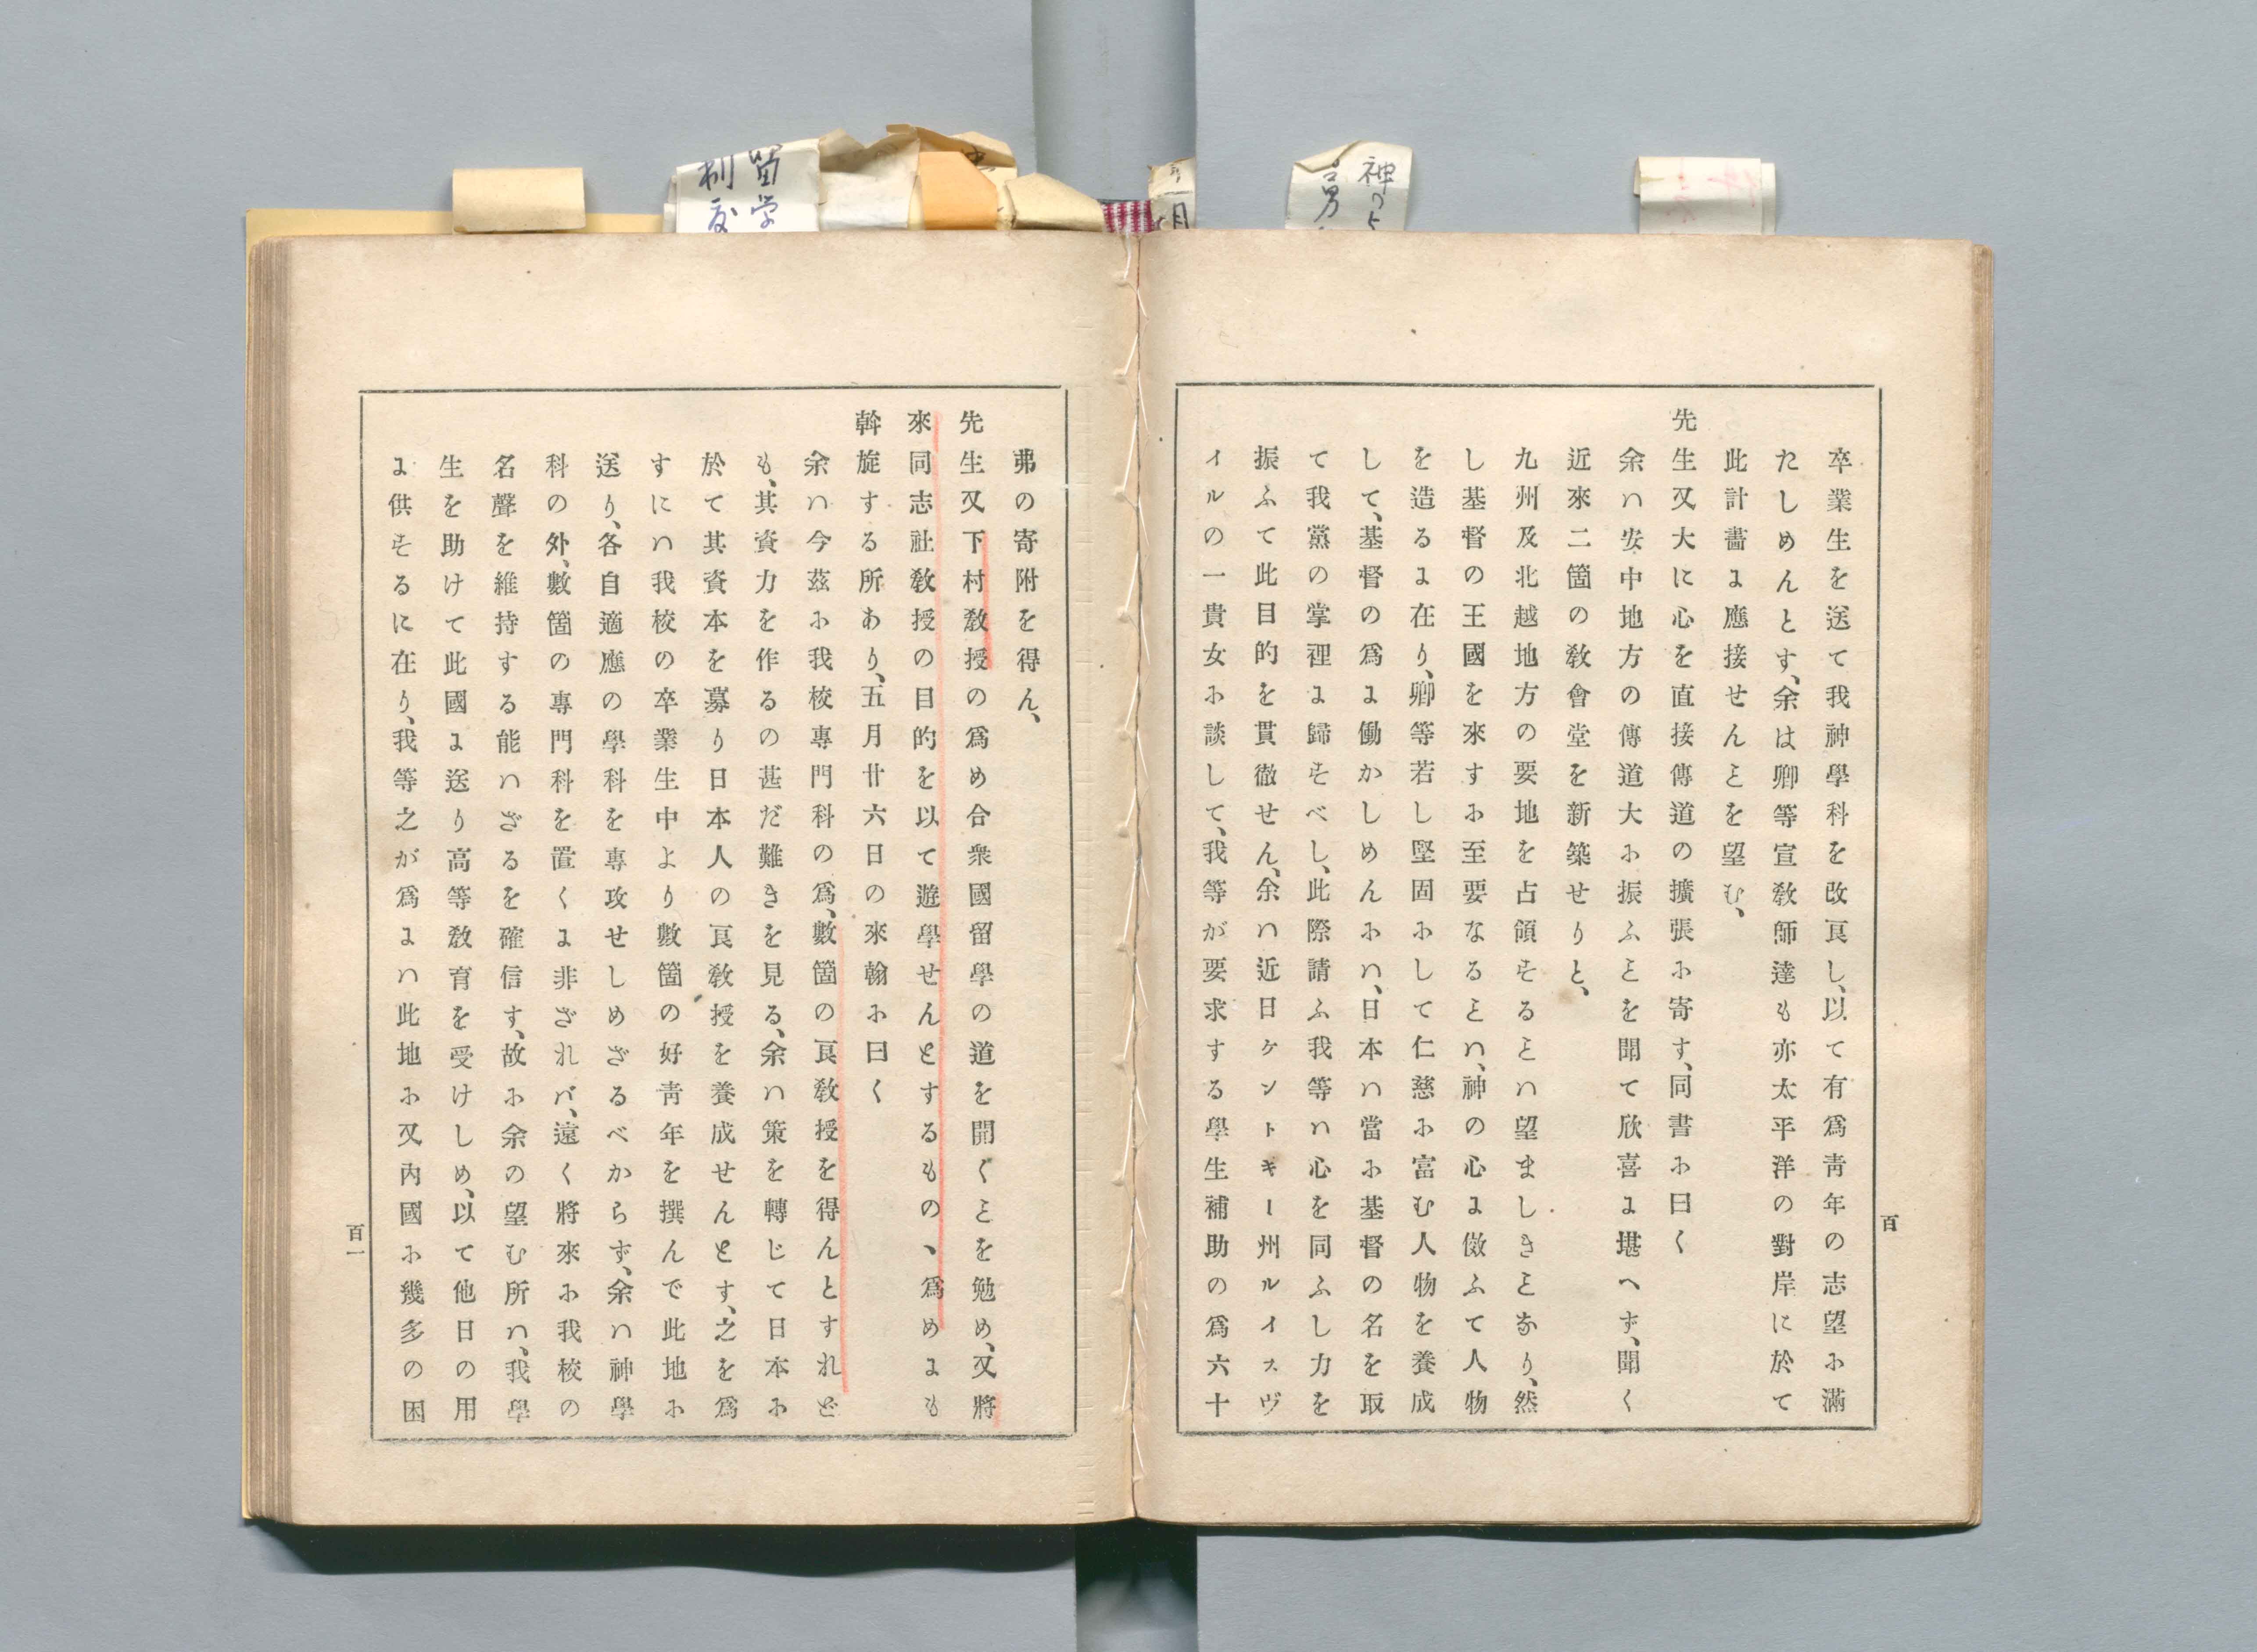 卒業生を送て我神學科を改良し、以て有爲靑年の志望に滿
たしめんとす、余は卿等宣敎師達も亦太平洋の對岸に於て
此計畵に應接せんヿを望む、
先生又大に心を直接傳道の擴張に寄す、同書に曰く
余ハ安中地方の傳道大に振ふヿを聞て欣喜に堪へず、聞く
近來二箇の敎會堂を新築せりと、
九州及北越地方の要地を占領するヿハ望ましきヿなり、然
し基督の王國を來すに至要なるヿハ、神の心に傚ふて人物
を造るに在り、卿等若し堅固にして仁慈に富む人物を養成
して、基督の爲に働かしめんにハ、日本ハ當に基督の名を取
て我黨の掌裡に歸すべし、此際請ふ我等ハ心を同ふし力を
振ふて此目的を貫徹せん、余ハ近日ケントキー州ルイスヴ
イルの一貴女に談して、我等が要求する學生補助の爲六十
百
弗の寄附を得ん、
先生又下村敎授の爲め合衆國留學の道を開くヿを勉め、又將
來同志社敎授の目的を以て遊學せんとするもの、爲めにも
斡旋する所あり、五月廿六日の來翰に曰く
余ハ今茲に我校專門科の爲、數箇の良敎授を得んとすれど
も、其資力を作るの甚だ難きを見る、余ハ策を轉じて日本に
於て其資本を募り日本人の良敎授を養成せんとす、之を爲
すにハ我校の卒業生中より數箇の好靑年を撰んで此地に
送り、各自適應の學科を專攻せしめざるべからず、余ハ神學
科の外、數箇の專門科を置くに非ざれバ、遠く將來に我校の
名聲を維持する能ハざるを確信す、故に余の望む所ハ、我學
生を助けて此國に送り高等敎育を受けしめ、以て他日の用
に供するに在り、我等之が爲にハ此地に又內國に幾多の困
百一
留学
制度
神の